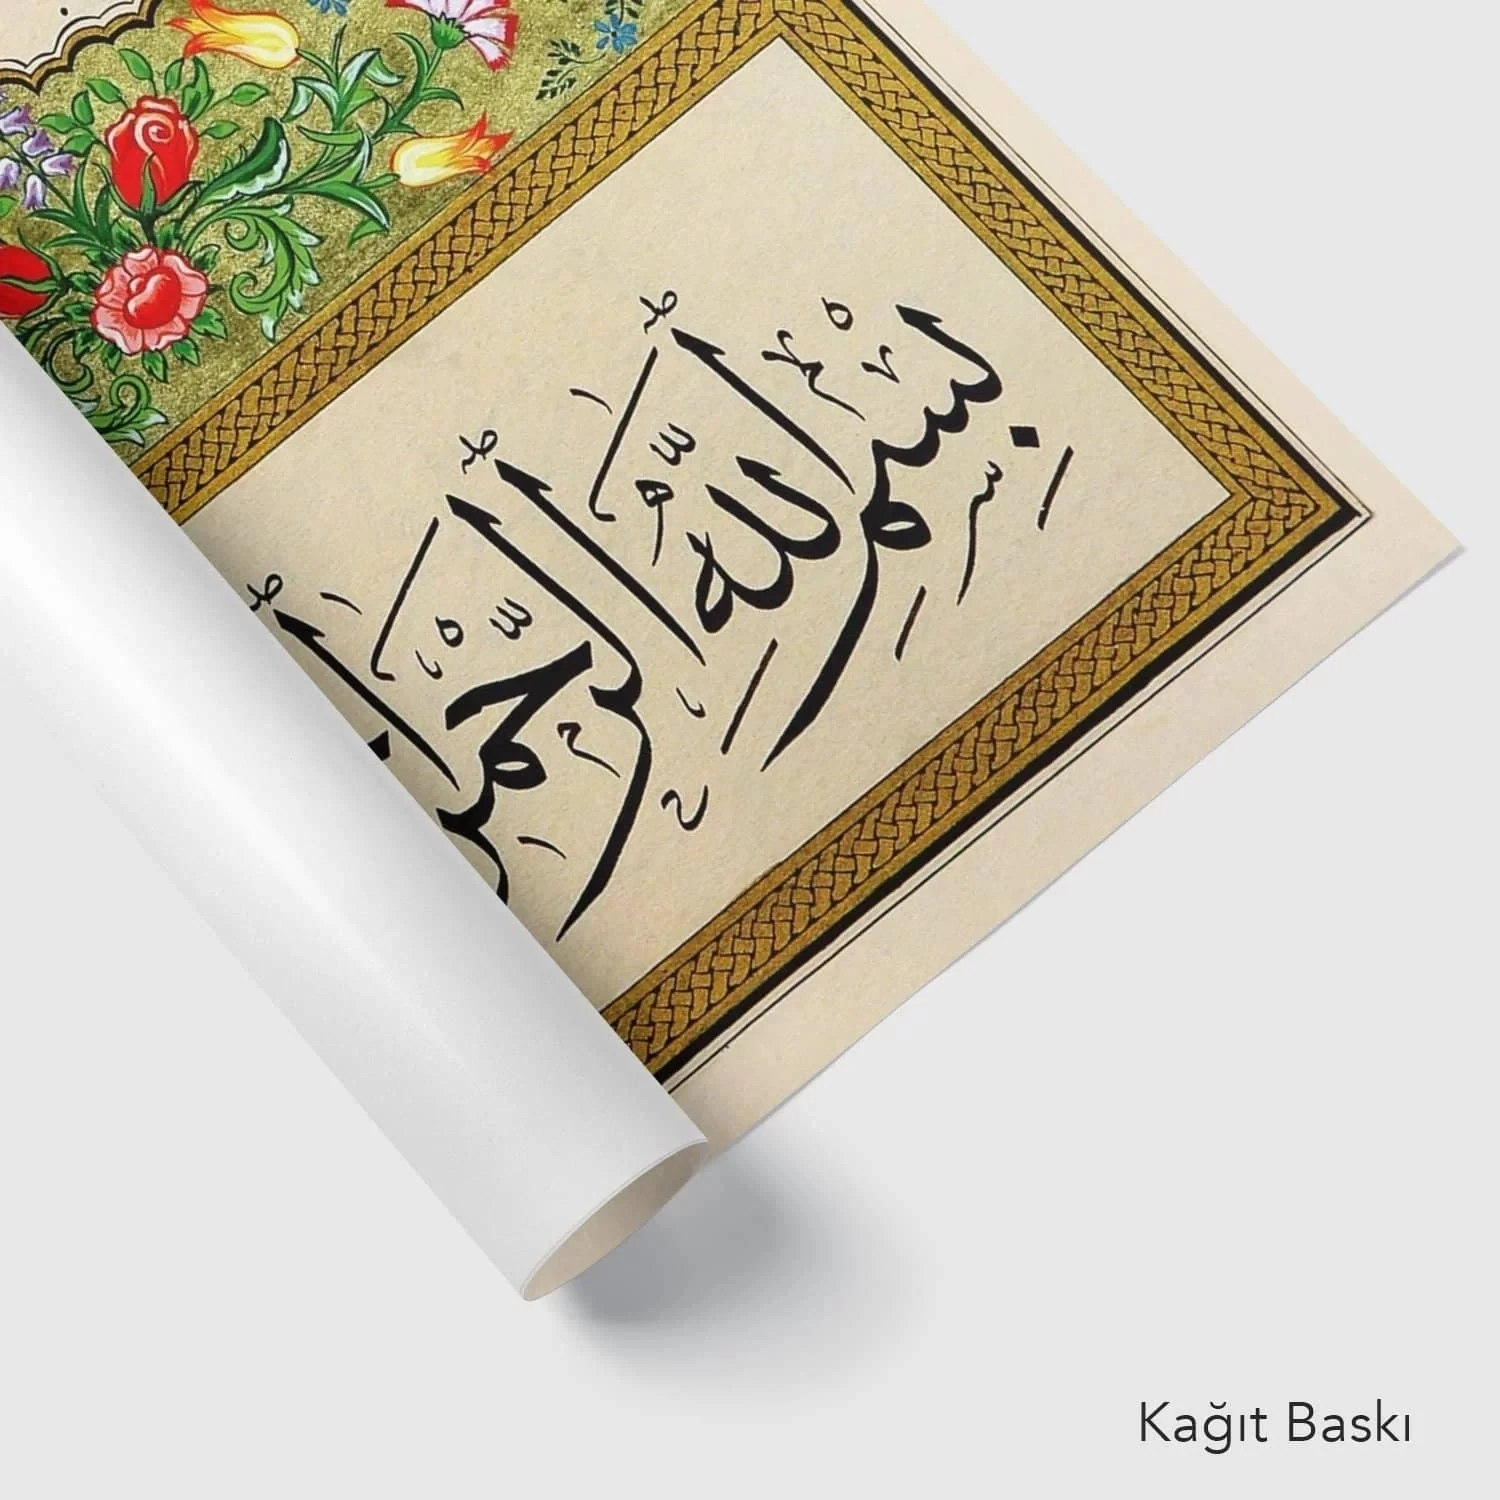 بِسْمِ اللّٰهِ الرَّحْمٰنِ
Kağıt Baskı